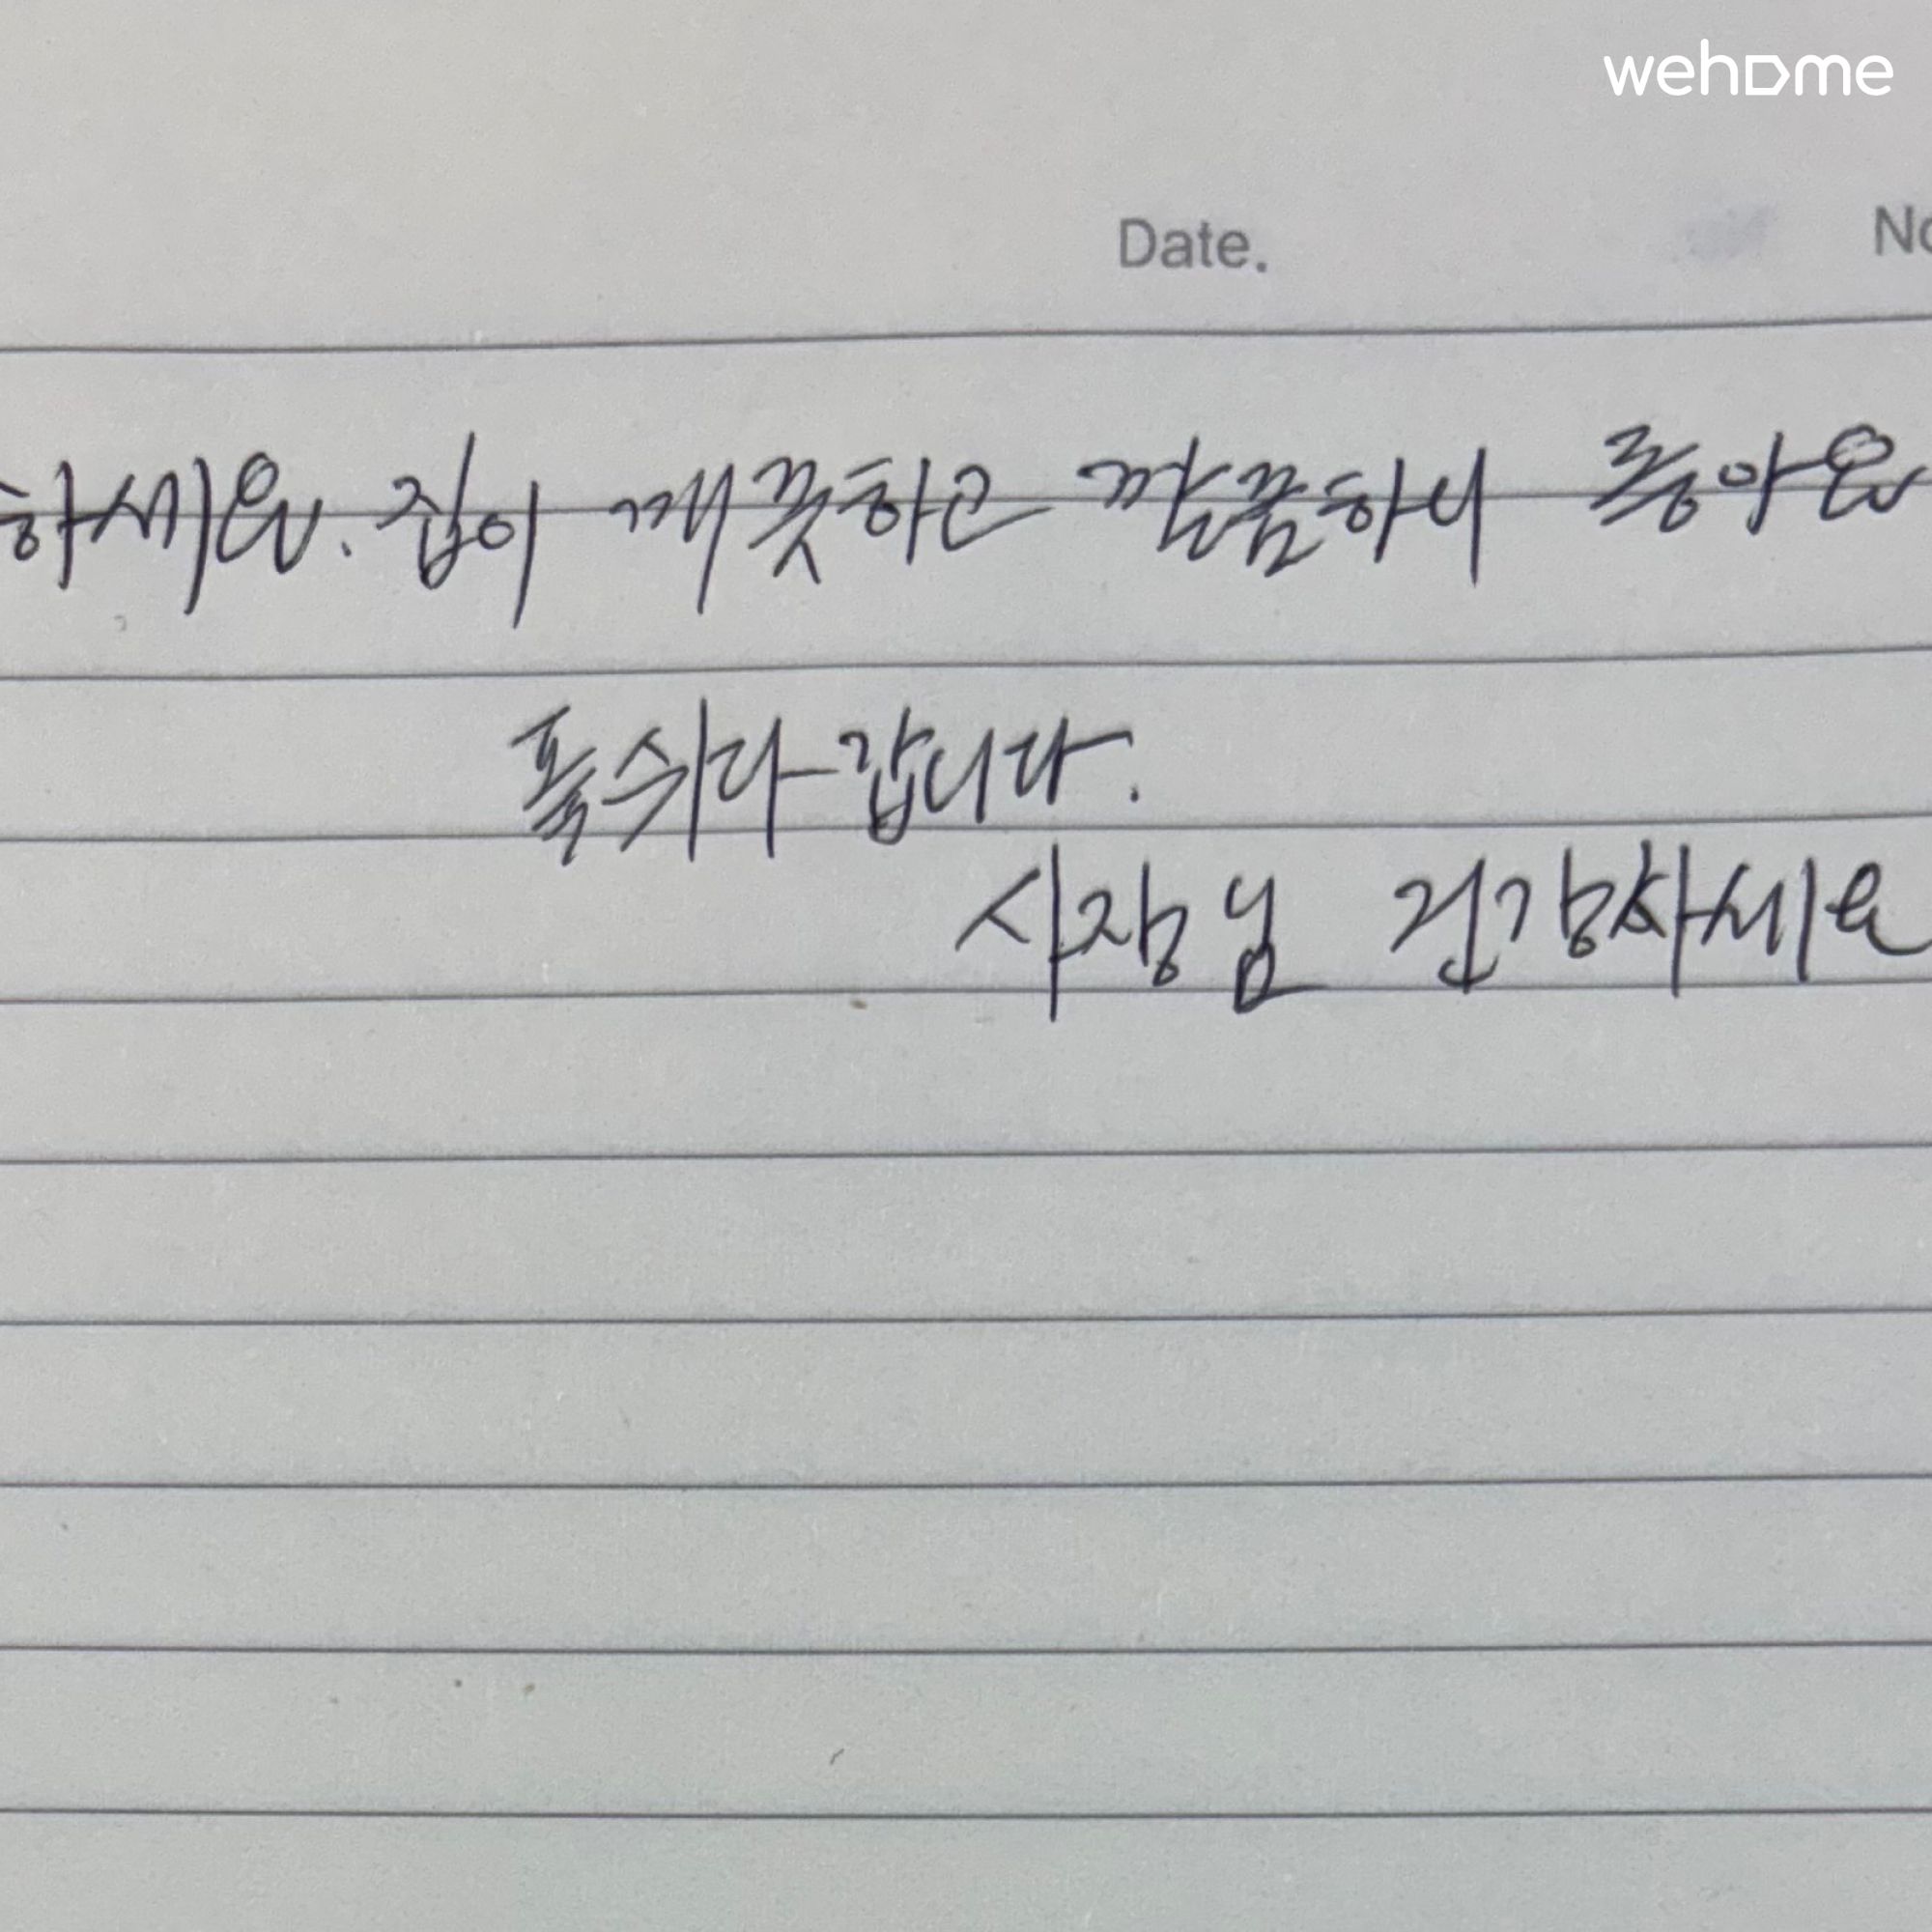 wehome
Date. No
하세요. 집이 깨끗하고 깔끔하니 좋아요
푹쉬다 갑니다.
사장님 건강하세요